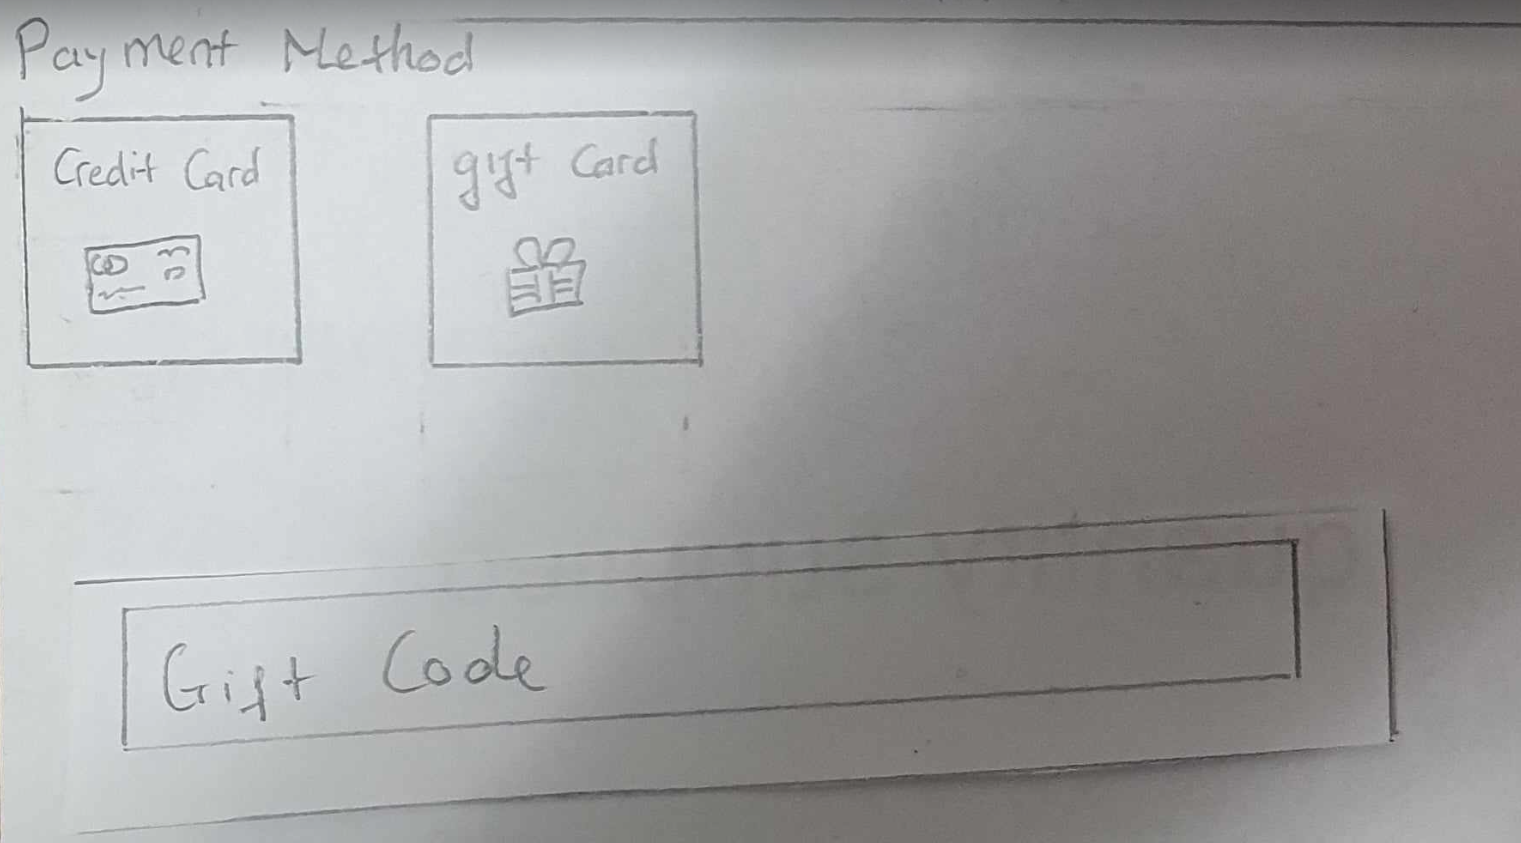 Payment Method
Credit Card
gift Card
Gift Code